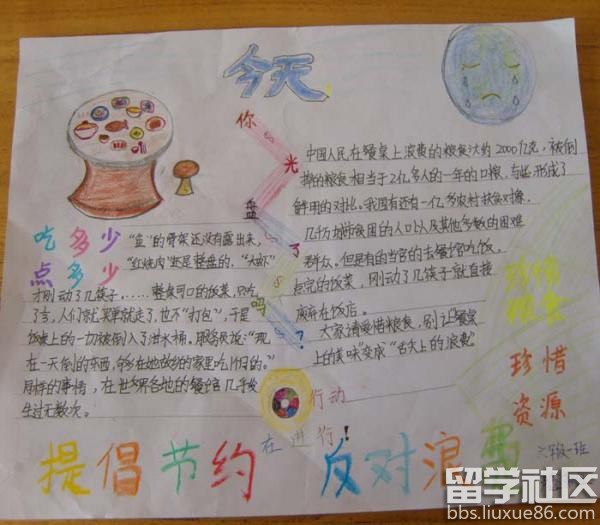 今天
你
光
盘
了
吗
?
吃多少
点多少
"鱼"的骨架还没有露出来,
"红烧肉"还是整盘的,"大虾"
才刚动了几筷子……整桌可口的饭菜,只吃
了一点,人们就买单就走了,也不"打包",于是
饭桌上的一切被倒入了泔水桶。服务员说:"现
在一天倒的东西,够在她故乡的家里吃1个月的。"
同样的事情,在世界各地的餐馆几乎发
生过无数次。
中国人民在餐桌上浪费的粮食达约2000亿元,被倒
掉的粮食相当于2亿多人的一年的口粮,与此形成了
鲜明的对比。我国还有一亿多农村扶贫对象、
几千万城市贫困的人口以及其他多数的困难
群众。但是有的当官的去餐馆吃饭,
点完的饭菜,刚动了几筷子就直接
废弃在饭店。
大家请爱惜粮食,别让"餐桌
上的美味"变成"舌尖上的浪费"
珍惜
粮食
珍惜
资源
行动
在进行!
提倡节约
反对浪费
六年级一班
留学社区
bbs.liuxue86.com